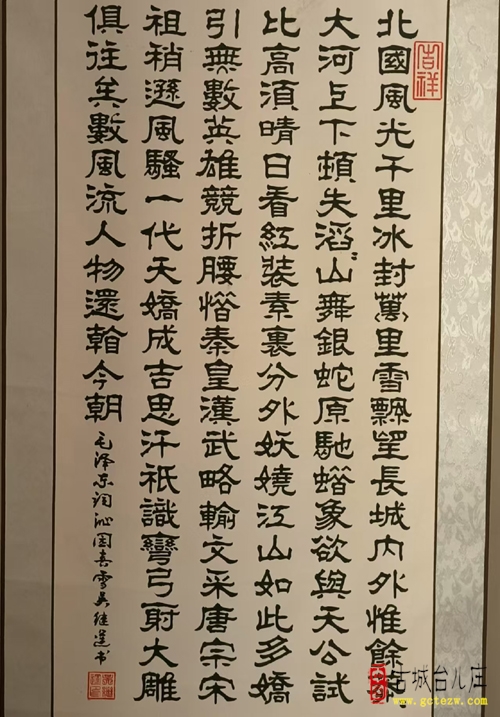 吉祥
北國風光千里冰封萬里雪飄望長城內外惟餘莽
大河上下頓失滔〻山舞銀蛇原馳蠟象欲與天公試
比高須晴日看紅裝素裹分外妖嬈江山如此多嬌
引無數英雄競折腰惜秦皇漢武略輸文采唐宗宋
祖稍遜風騷一代天嬌成吉思汗祇識彎弓射大雕
俱往矣數風流人物還看今朝
毛泽东词沁园春雪吴继书
古城台儿庄
www.gctezw.com